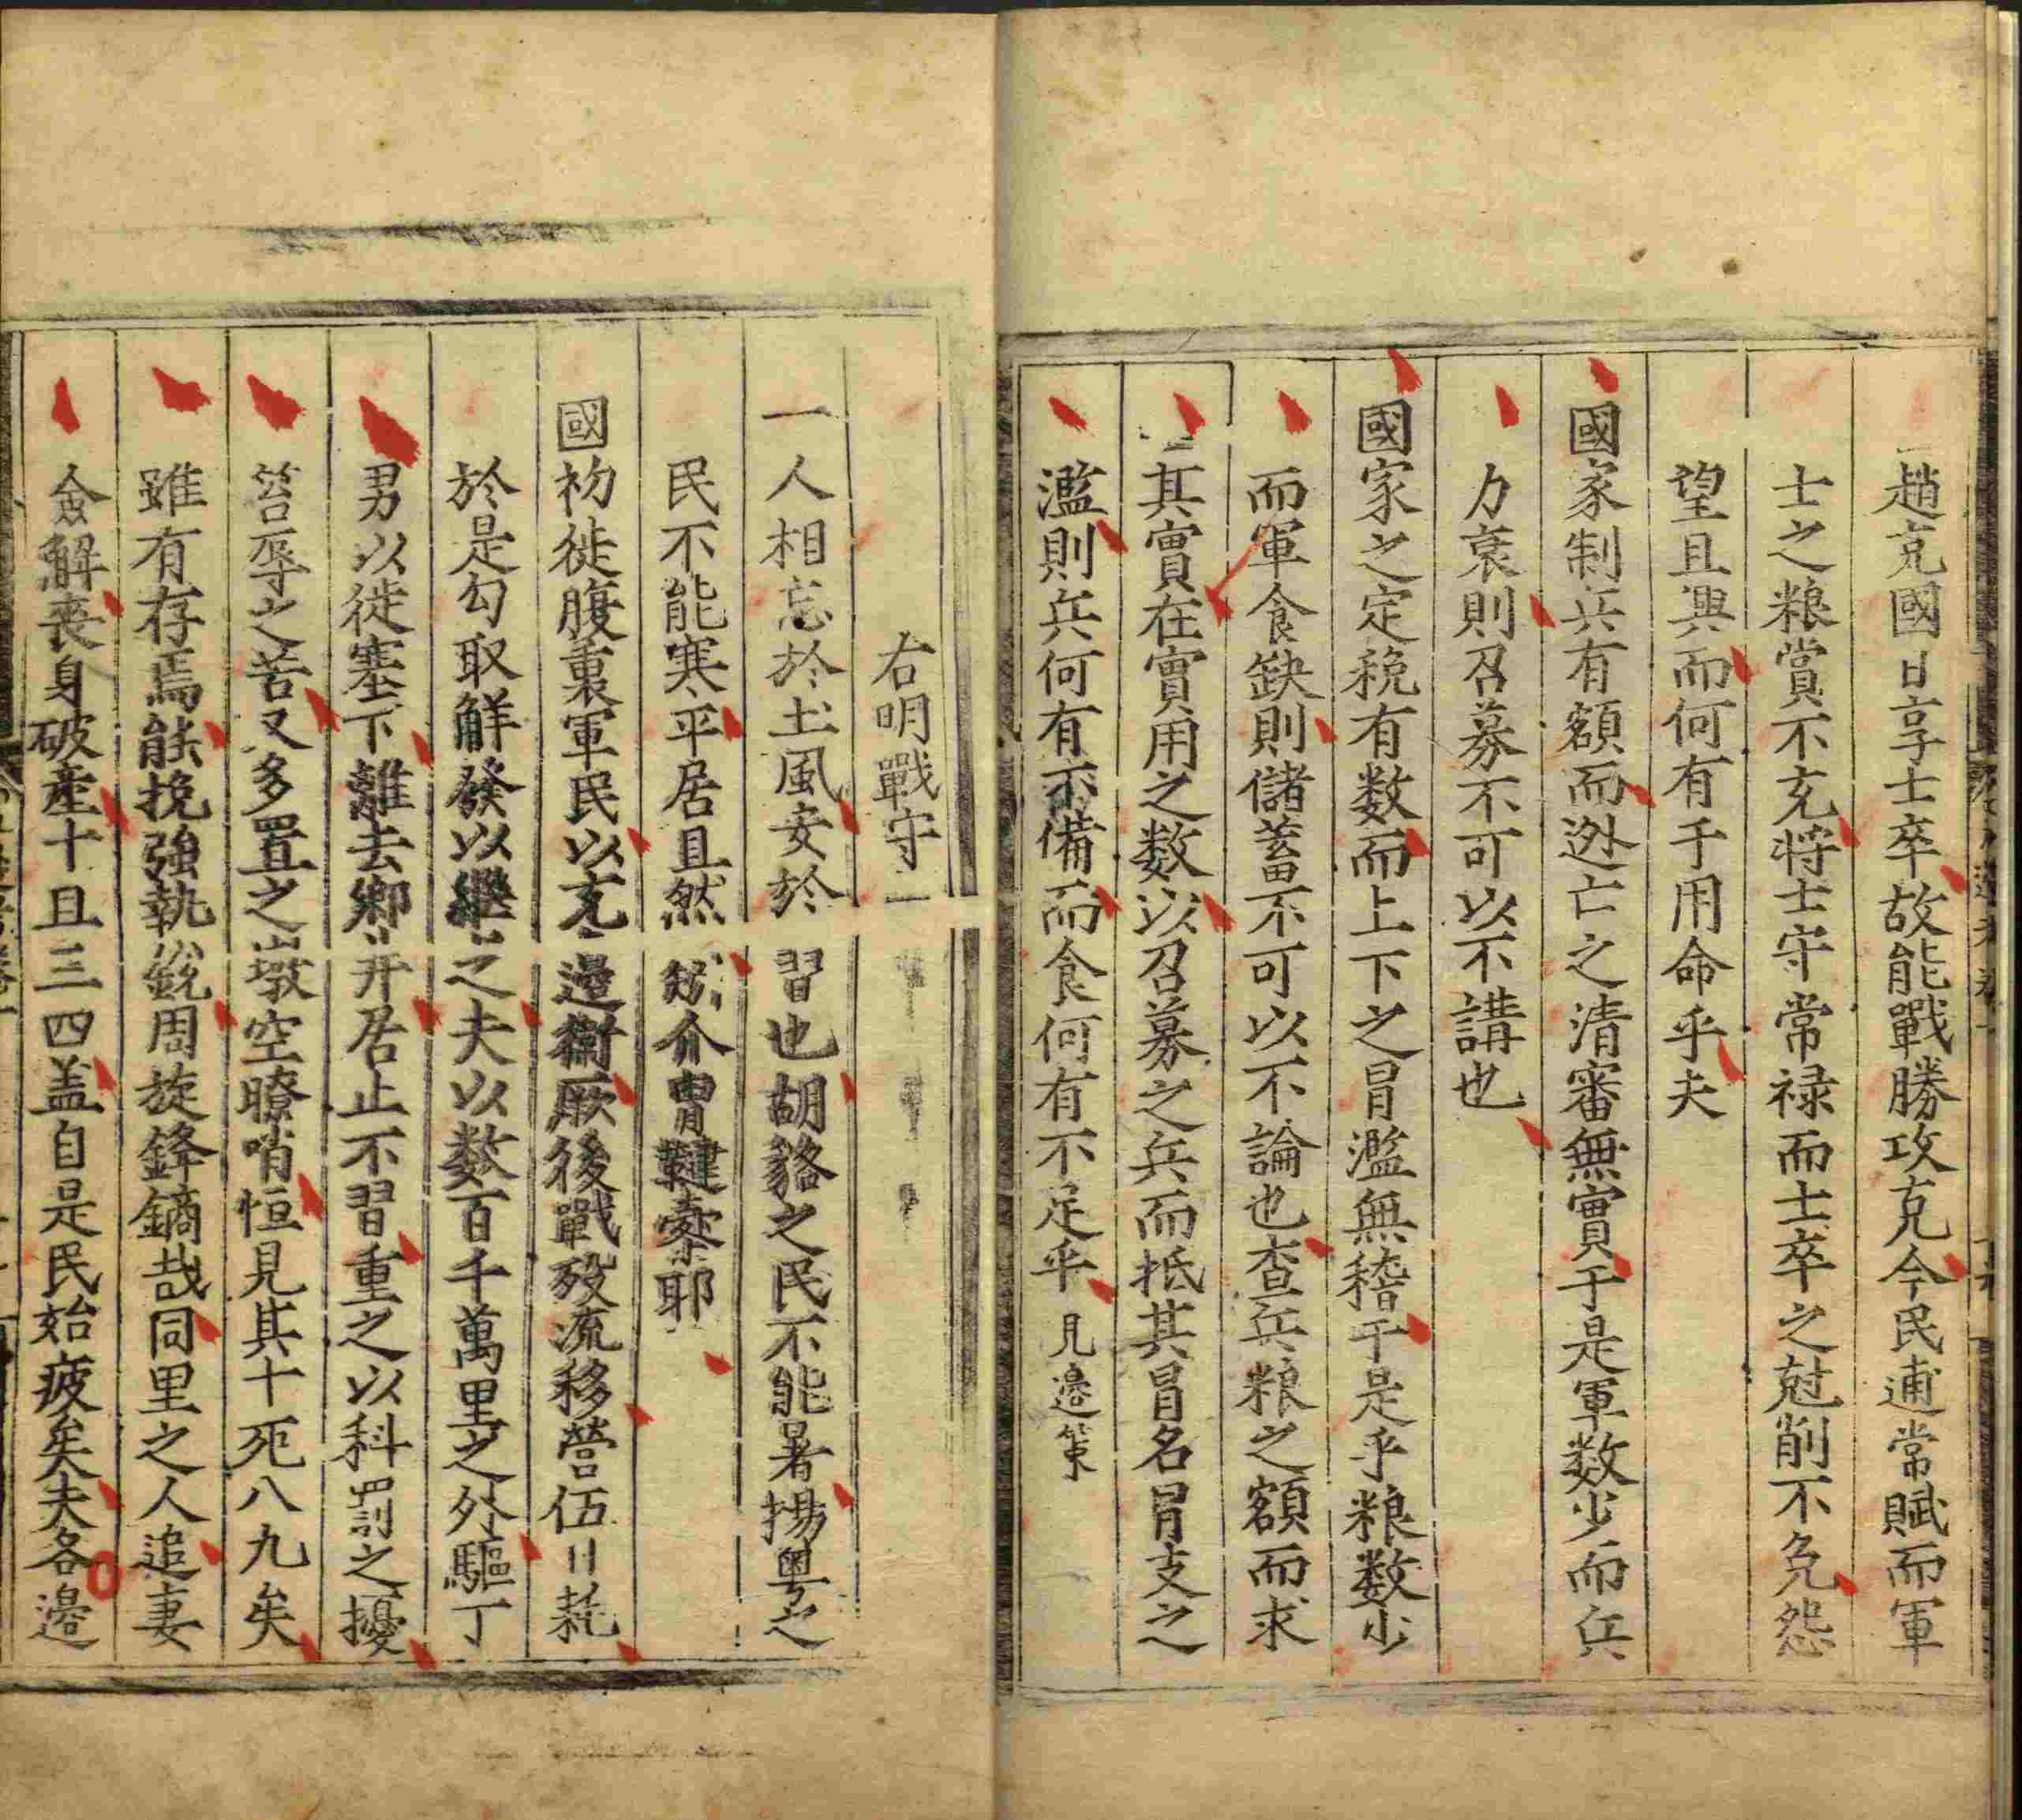 趙克國日享士卒故能戰勝攻克今民逋常賦而軍
士之粮賞不充將士守常禄而士卒之尅削不免怨
望且興而何有于用命乎夫
國家制兵有額而迯亡之清審無實于是軍数少而兵
力衰則召募不可以不講也
國家之定稅有数而上下之冒濫無稽于是乎粮数少
而軍食缺則儲蓄不可以不論也查兵粮之額而求
其實在實用之数以召募之兵而抵其冒名冐支之
濫則兵何有不備而食何有不足乎 見邉策
右明戰守一
一人相忘於土風安於習也胡貉之民不能暑揚粤之
民不能寒平居且然矧介冑鞬櫜耶
國初徙腹裏軍民以充邉衛厥後戰歿流移營伍日耗
於是勾取觧發以繼之夫以数百千萬里之外驅丁
男以徙塞下離去鄉井居止不習重之以科罰之擾
笞辱之苦又多置之墩空瞭哨恒見其十死八九矣
雖有存焉能挽強執銳周旋鋒鏑哉同里之人追妻
僉解喪身破產十且三四盖自是民始疲矣夫各邉